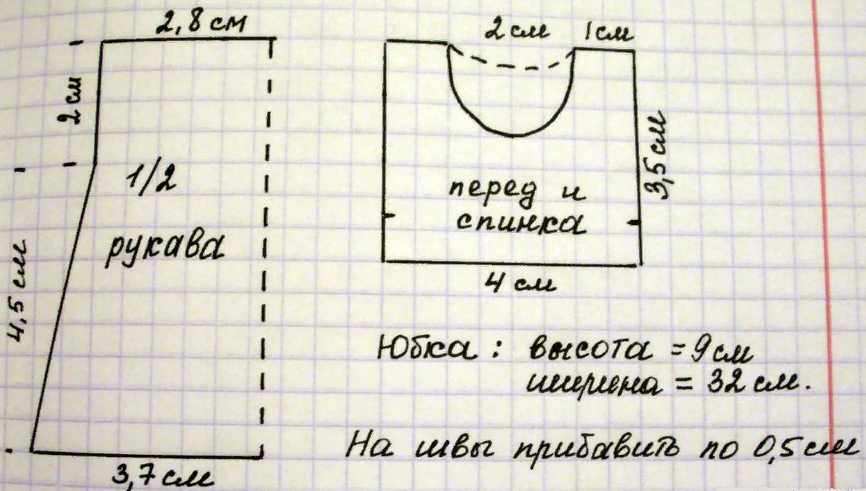 2,8 см
2 см
1/2
рукава
4,5 см
3,7 см
2 см
1 см
3,5 см
перед и
спинка
4 см
Юбка : высота = 9 см
ширина = 32 см.
На швы прибавить по 0,5 см